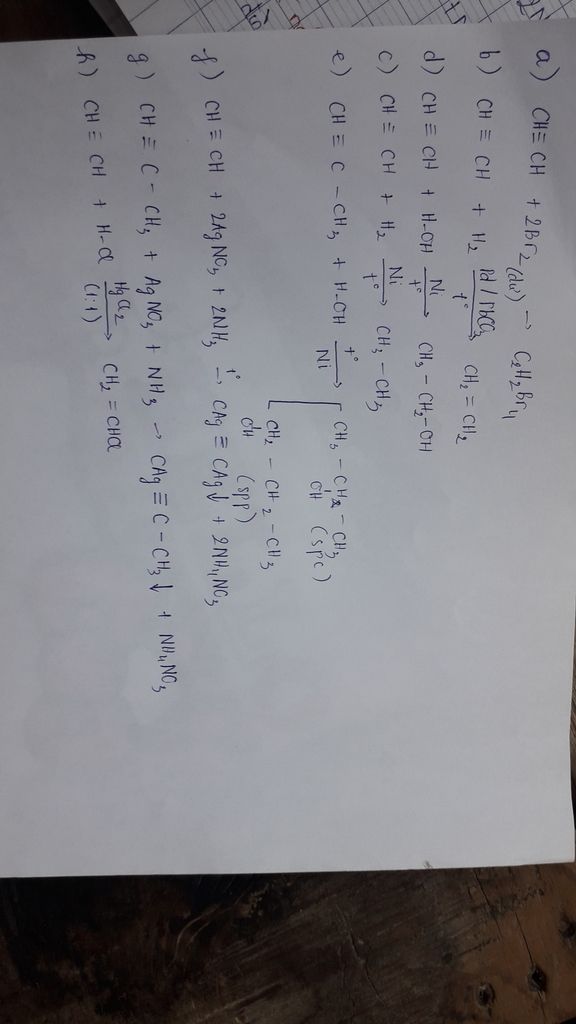 a) CH≡CH + 2Br₂ (dư) → C₂H₂Br₄
b) CH≡CH + H₂ –Pd/PbCO₃, t°→ CH₂=CH₂
d) CH≡CH + H-OH –Ni, t°→ CH₃-CH₂-OH
c) CH≡CH + H₂ –Ni, t°→ CH₃-CH₃
e) CH≡C-CH₃ + H-OH –t°, Ni→ [ CH₃-CH₂-CH₃
OH (spc)
CH₂-CH₂-CH₃
OH (spp)
f) CH≡CH + 2AgNO₃ + 2NH₃ –t°→ CAg≡CAg↓ + 2NH₄NO₃
g) CH≡C-CH₃ + AgNO₃ + NH₃ → CAg≡C-CH₃↓ + NH₄NO₃
h) CH≡CH + H-Cl –HgCl₂, (1:1)→ CH₂=CHCl